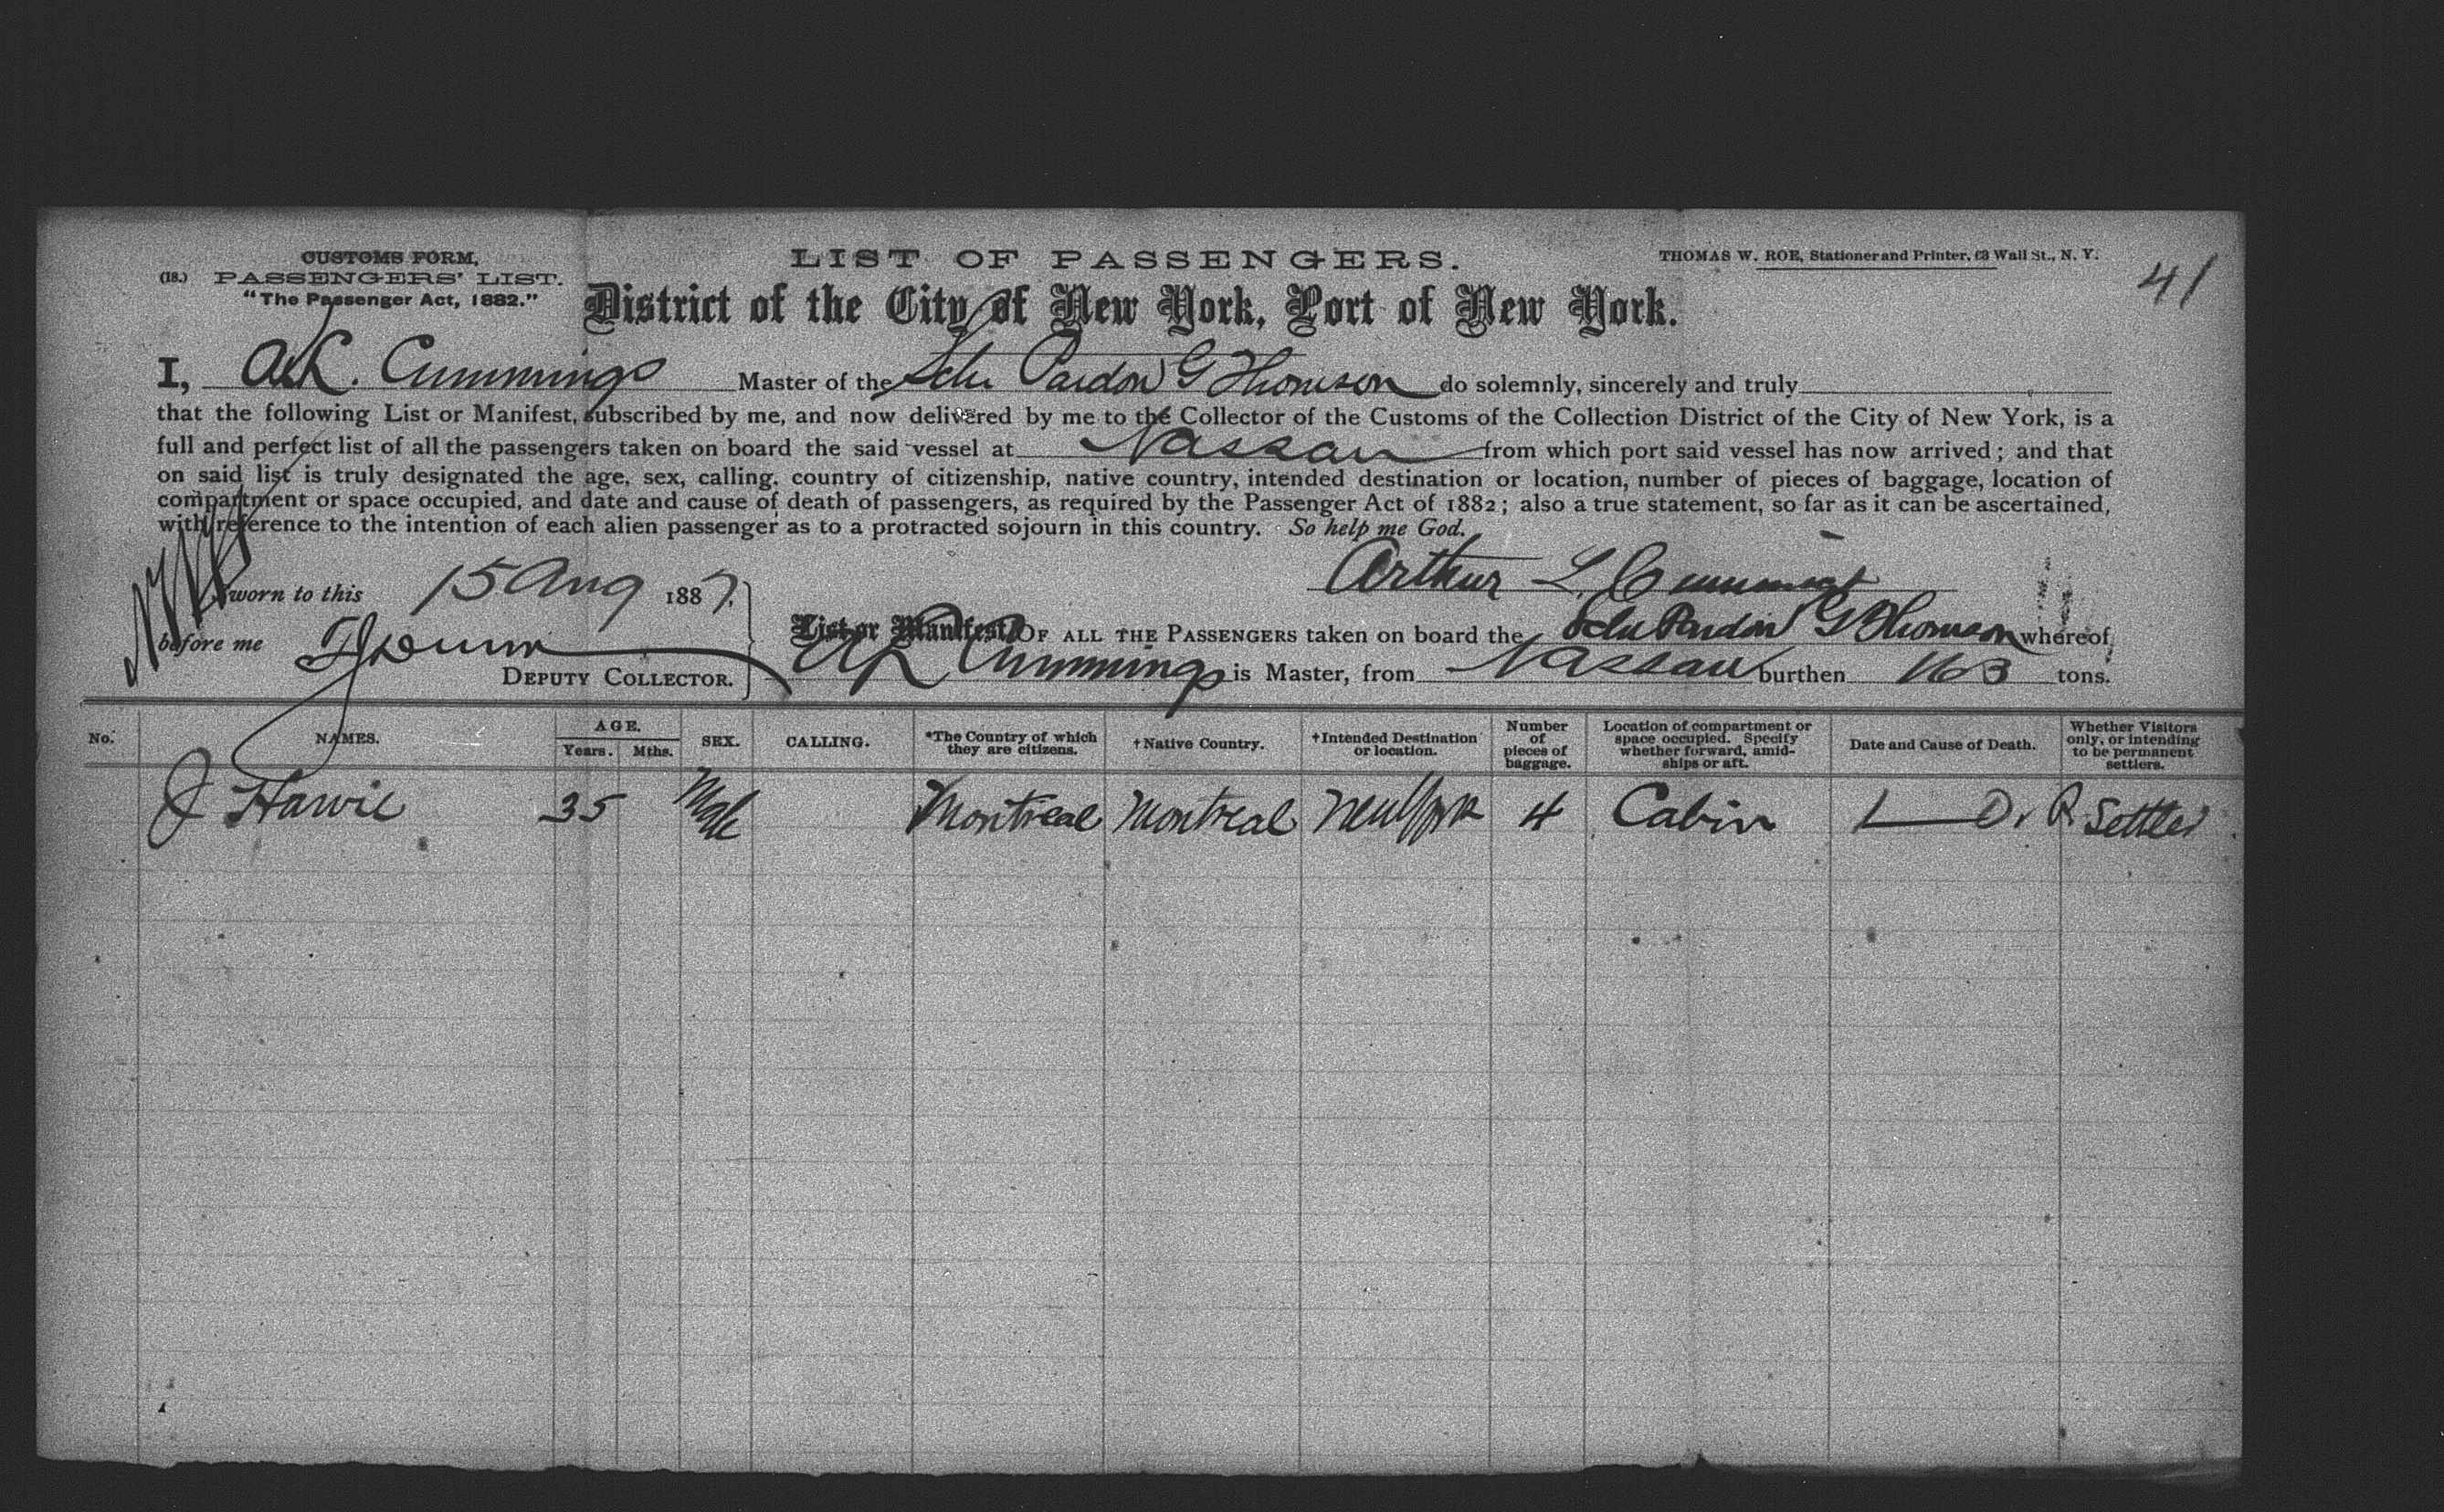 CUSTOMS FORM.
(18.) PASSENGERS' LIST.
"The Passenger Act, 1882."
LIST OF PASSENGERS.
THOMAS W. ROE, Stationer and Printer, 63 Wall St., N. Y.
41
District of the City of New York, Port of New York.
I, A. L. Cummings Master of the Schr Pardon G Thomson do solemnly, sincerely and truly
that the following List or Manifest, subscribed by me, and now delivered by me to the Collector of the Customs of the Collection District of the City of New York, is a
full and perfect list of all the passengers taken on board the said vessel at Nassau from which port said vessel has now arrived; and that
on said list is truly designated the age, sex, calling, country of citizenship, native country, intended destination or location, number of pieces of baggage, location of
compartment or space occupied, and date and cause of death of passengers, as required by the Passenger Act of 1882; also a true statement, so far as it can be ascertained,
with reference to the intention of each alien passenger as to a protracted sojourn in this country. So help me God.
Arthur L. Cummings
Sworn to this 15 Aug 1887.
before me
DEPUTY COLLECTOR.
List or Manifest OF ALL THE PASSENGERS taken on board the Schr Pardon G Thomson whereof
A L Cummings is Master, from Nassau burthen 163 tons.
No. NAMES. AGE. Years. Mths. SEX. CALLING. *The Country of which they are citizens. †Native Country. †Intended Destination or location. Number of pieces of baggage. Location of compartment or space occupied. Specify whether forward, amidships or aft. Date and Cause of Death. Whether Visitors only, or intending to be permanent settlers.
J Hawie 35 Male Montreal Montreal New York 4 Cabin Settler